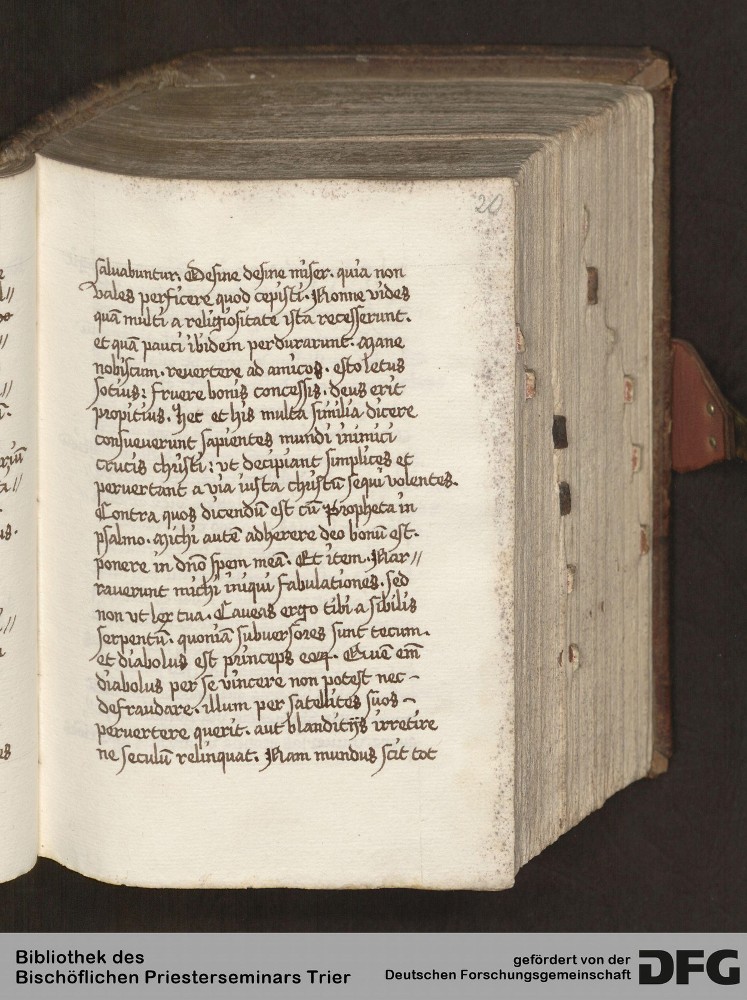 20
salvabuntur. Desine desine miser. quia non
vales perficere quod cepisti. Nonne vides
quā multi a religiositate ista recesserunt.
et quā pauci ibidem perdurarunt. Mane
nobiscum. revertere ad amicos. esto letus
sotius: fruere bonis concessis. deus erit
propitius. Hec et his multa similia dicere
consueverunt sapientes mundi inimici
crucis christi: ut decipiant simplices et
pervertant a via iusta christū sequi volentes.
Contra quos dicendū est cū Propheta in
psalmo. Michi autē adherere deo bonū est.
ponere in dn̄o spem meā. Et item. Nar//
raverunt michi iniqui fabulationes. sed
non ut lex tua. Caveas ergo tibi a sibilis
serpentū. quoniā subversores sunt tecum.
et diabolus est princeps eoꝝ. Quē em̄
diabolus per se vincere non potest nec -
defraudare. illum per satellites suos -
pervertere querit. aut blanditijs irretire
ne seculū relinquat. Nam mundus scit tot
Bibliothek des
Bischöflichen Priesterseminars Trier
gefördert von der
Deutschen Forschungsgemeinschaft
DFG